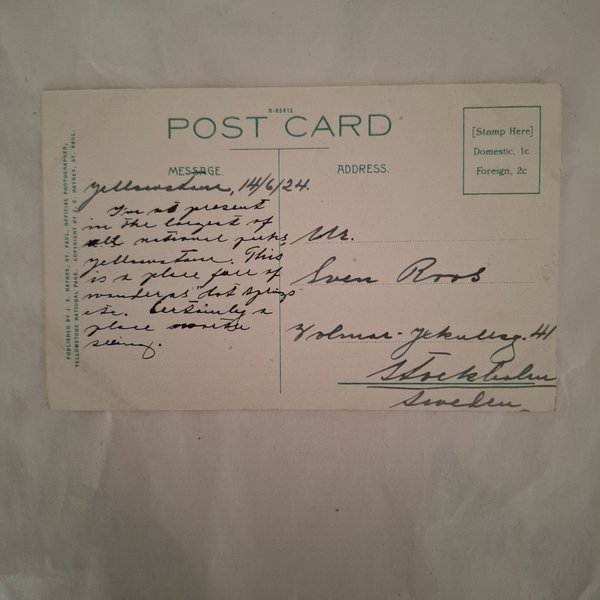 R-83812
POST CARD
[Stamp Here]
Domestic, 1c
Foreign, 2c
MESSAGE.
ADDRESS.
Yellowstone, 14/6/24.
I'm at present
in the largest of
all national parks,
Yellowstone. This
is a place full of
wonder as "hot springs"
etc. Certainly a
place worthe
seeing.
Mr.
Sven Roos
41
Stockholm
Sweden.
PUBLISHED BY J. E. HAYNES, ST. PAUL, OFFICIAL PHOTOGRAPHER,
YELLOWSTONE NATIONAL PARK. COPYRIGHT BY J. E. HAYNES, ST. PAUL.